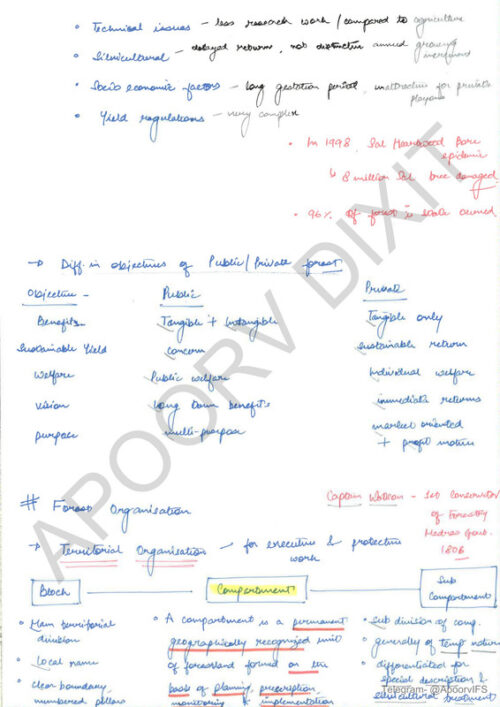 • Technical issues - less research work / compared to agriculture
• Silvicultural - delayed returns, not distinctive annual growing increment
• Socio economic factors - long gestation period, inattractive for private players
• Yield regulations - very complex
• In 1998, Sal Heartwood Bore epidemic
↳ 8 million Sal tree damaged
• 96% of forest is state owned
→ Diff. in objectives of Public/Private forest
Objective - Public Private
Benefits Tangible + Intangible Tangible only
Sustainable Yield concern sustainable return
Welfare Public welfare Individual welfare
vision long term benefits immediate returns
purpose multi-purpose market oriented
+ profit motive
# Forest Organisation
Captain Watson - 1st Conservator
of Forestry
Madras Govt.
1806
→ Territorial Organisation - for executive & protective
work
Block Compartment Sub
Compartment
• Main territorial
division
• Local name
• clear boundary,
numbered pillars
• A compartment is a permanent
geographically recognized unit
of forestland formed on the
basis of planning, prescription,
monitoring & implementation
• Sub division of comp.
• generally of temp nature
• differentiated for
special description &
silvicultural treatment
APOORV DIXIT
Telegram- @ApoorvIFS